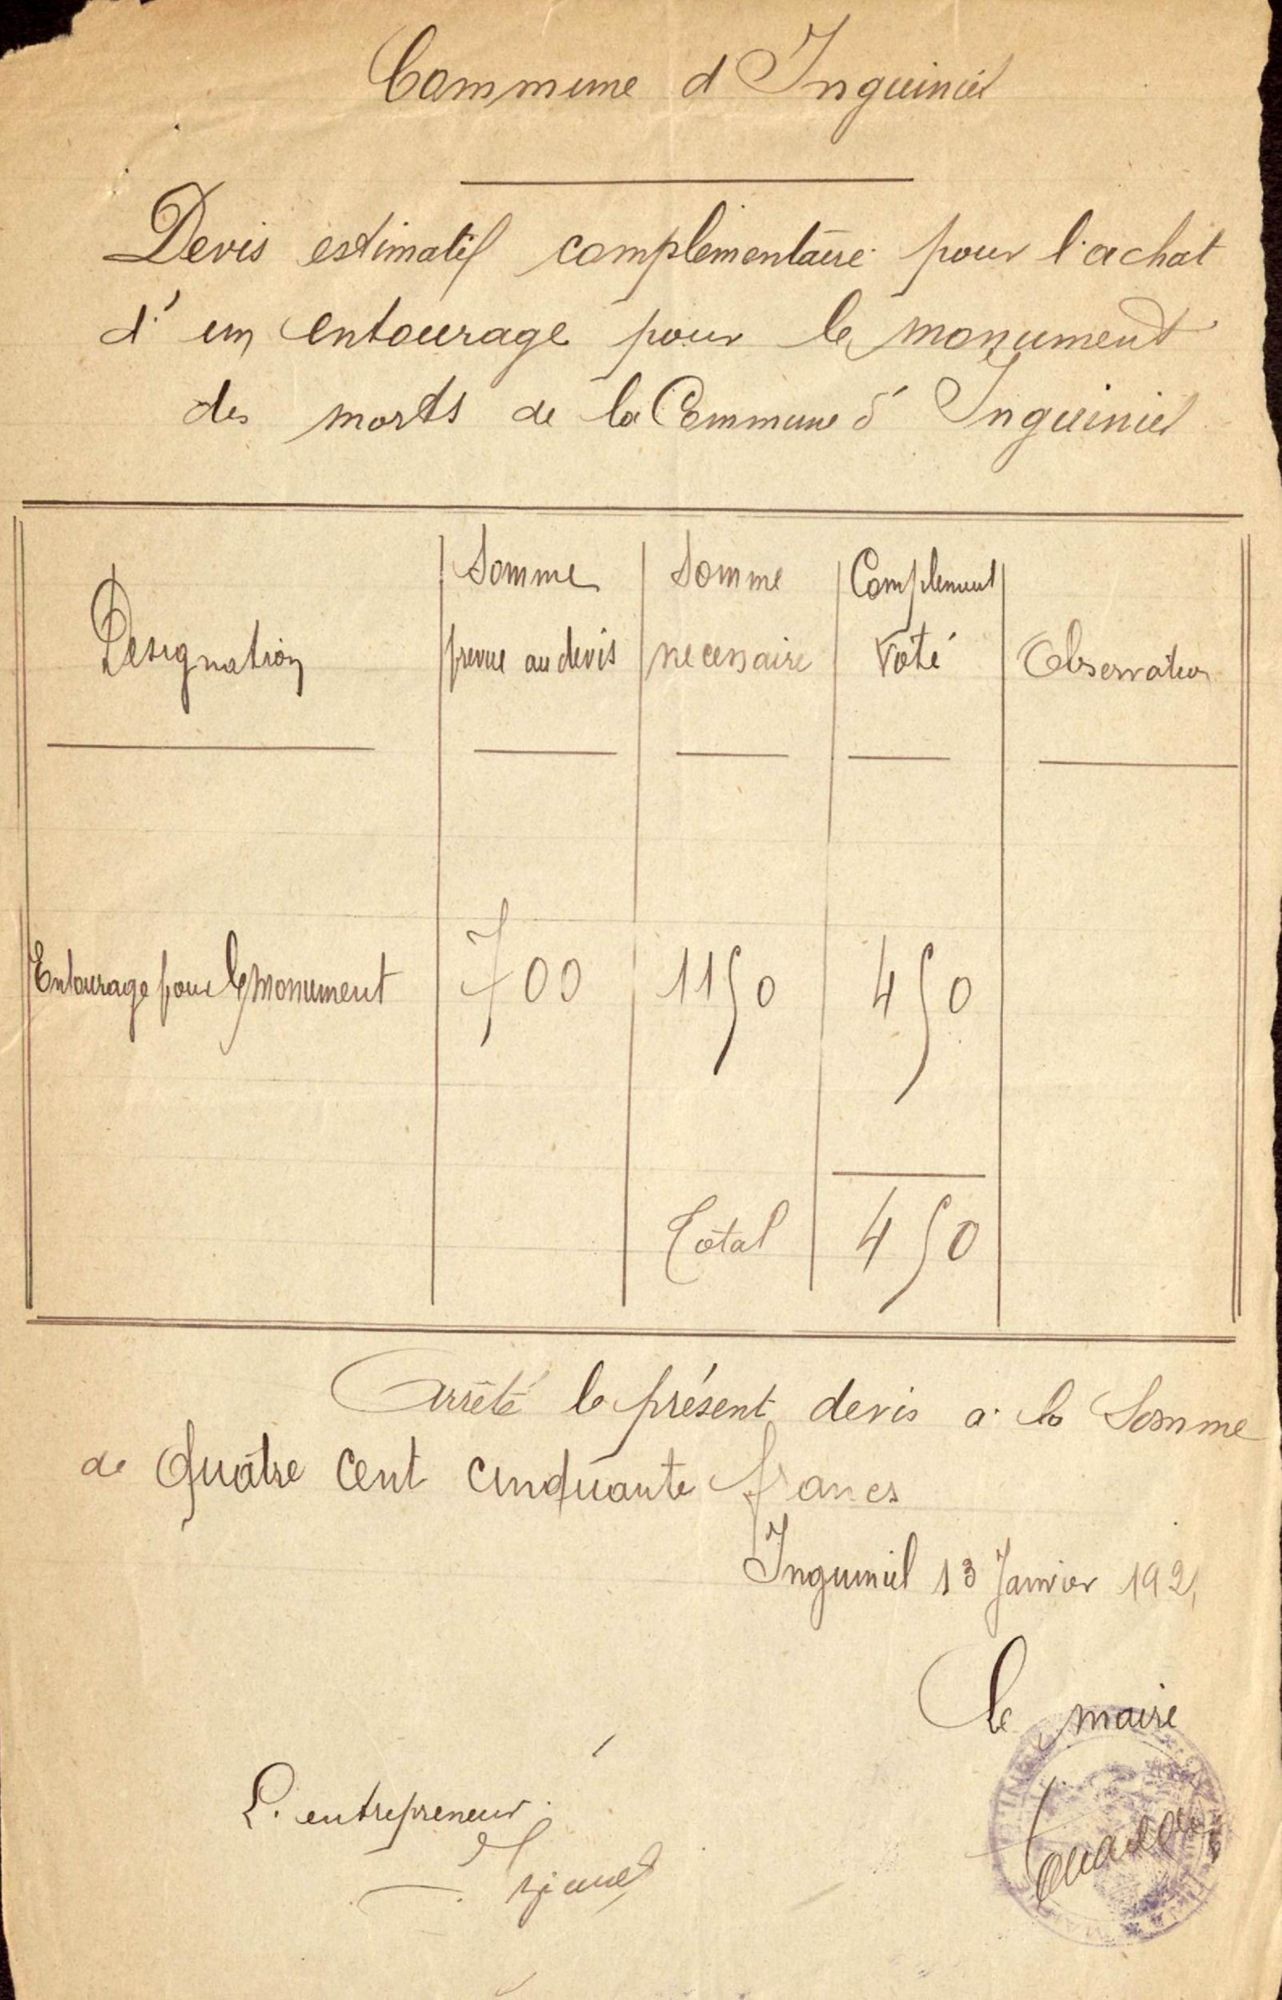 Commune d Inguiniel
Devis estimatif complémentaire pour l'achat
d'un entourage pour le monument
des morts de la Commune d'Inguiniel
Designation
Somme prevue au devis
Somme necessaire
Complement Voté
Observation
Entourage pour le monument 700 1150 450
Total 450
Arrêté le présent devis a la Somme
de Quatre cent cinquante francs
Inguiniel 13 Janvier 192
Le maire
L'entrepreneur